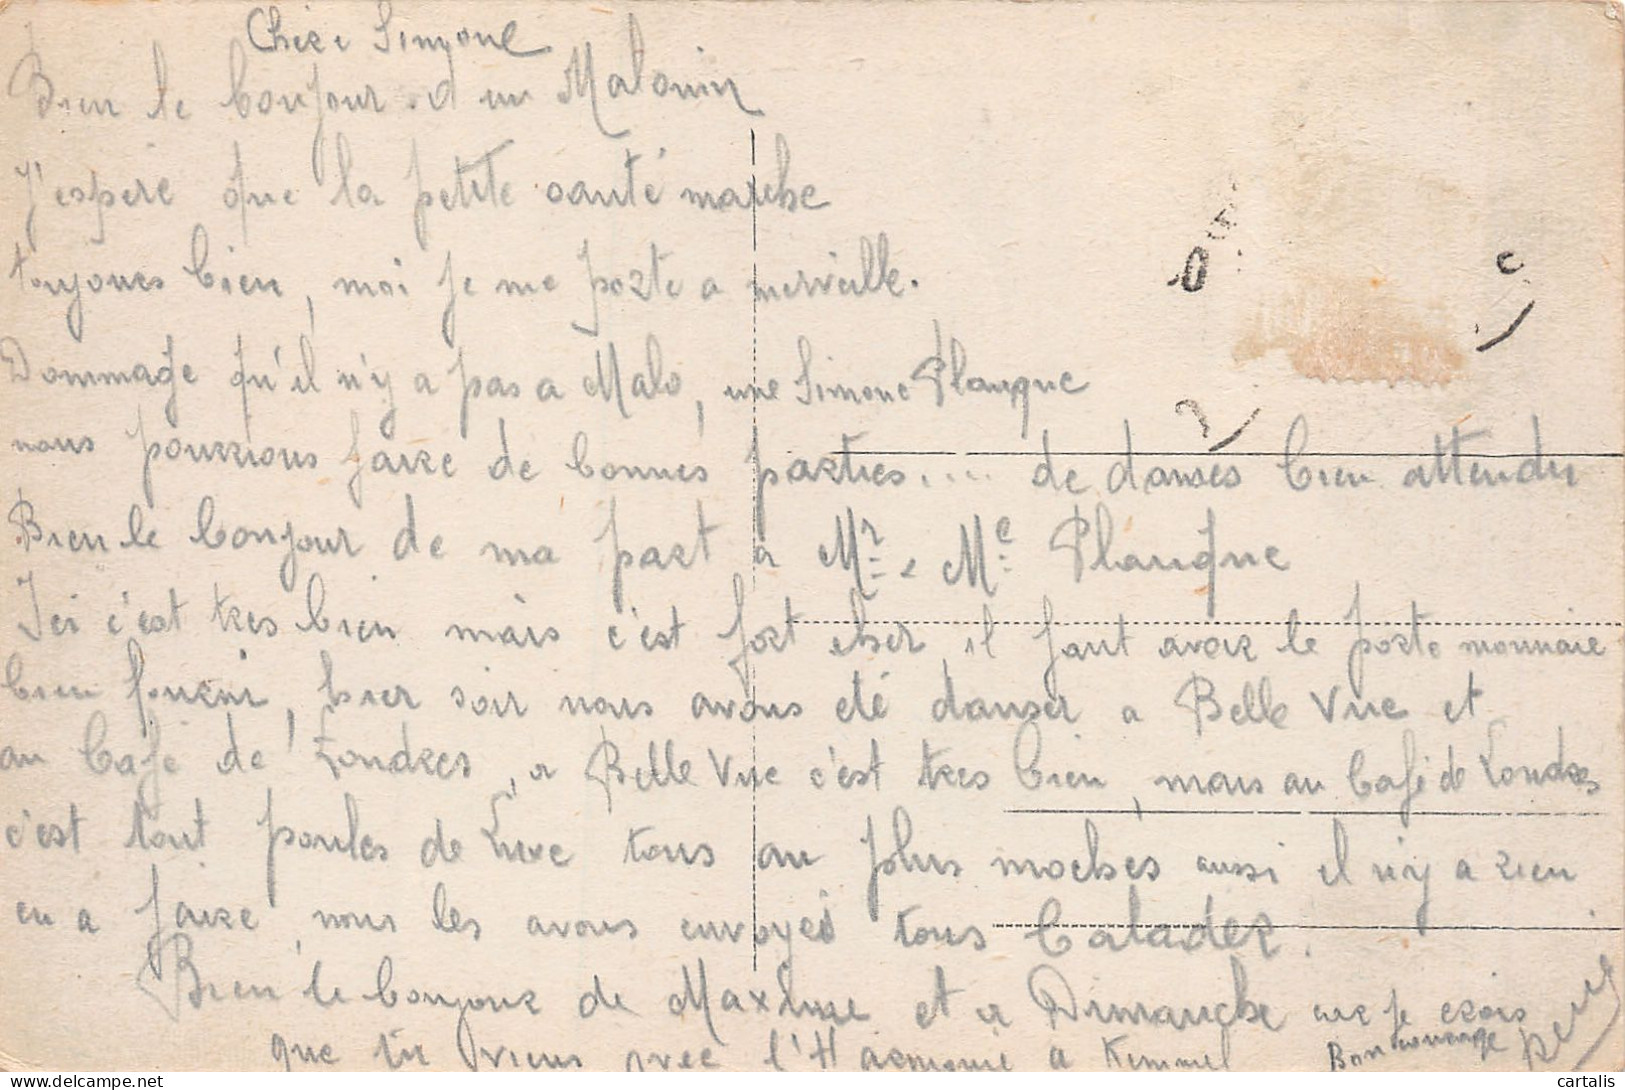 Chere Simone
Bien le bonjour d'un Malouin
J'espere que la petite santé marche
toujours bien, moi je me porte a merveille.
Dommage qu'il n'y a pas a Malo, une Simone Planque
nous pourrions faire de bonnes parties.... de danses bien attendu
Bien le bonjour de ma part a Mr e Me Planque
Ici c'est tres bien mais c'est fort cher il faut avoir le porte monnaie
bien fourni, hier soir nous avons eté danser a Belle Vue et
au Café de Londres, a Belle Vue c'est tres bien, mais au Café de Londres
c'est tout poules de Luxe tous au plus moches aussi il n'y a rien
en a faire, nous les avons envoyes tous Balader.
Bien le bonjour de Maxime et a Dimanche car je crois
que tu viens avec l'Harmonie a Kemmel
Bon courage
cartalis